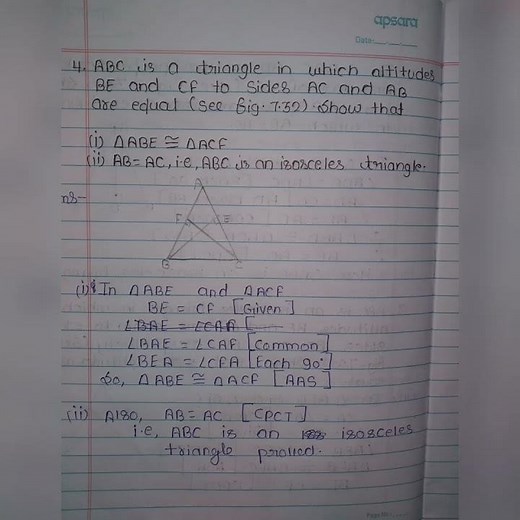 apsara
Date:
4. ABC is a triangle in which altitudes
BE and CF to Sides AC and AB
are equal (See fig. 7.32). Show that
(i) △ABE ≅ △ACF
(ii) AB = AC, i.e, ABC is an isosceles triangle.
ns-
A
F E
B C
(i) In △ABE and △ACF
BE = CF [Given]
∠BAE = ∠CAF [
∠BAE = ∠CAF [Common]
∠BEA = ∠CFA [Each 90°]
So, △ABE ≅ △ACF [AAS]
(ii) Also, AB = AC [CPCT]
i.e, ABC is an isosceles
triangle proved.